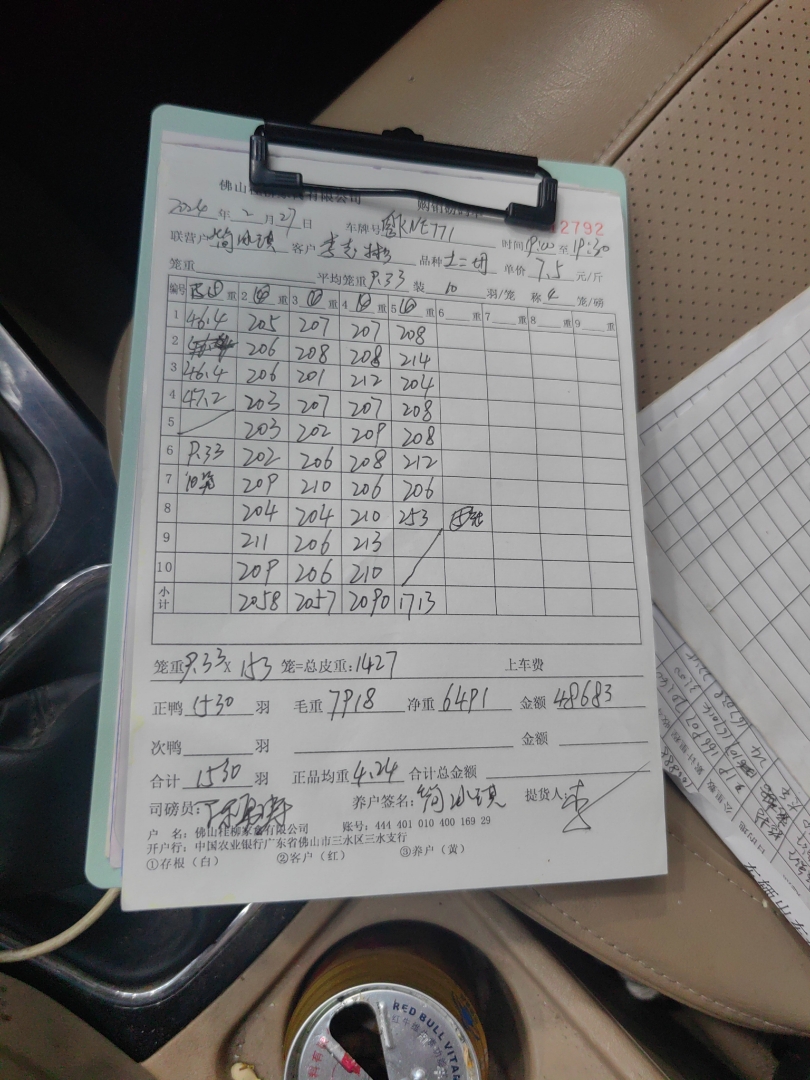 佛山桂柳 有限公司 购销
2024年2月27日 车牌号 KNE771 12792
联营户 客户 李志 品种 土二 单价7.5元/斤 时间 至19:30
笼重 平均笼重9.33 装10羽/笼 称4笼/磅
编号 重 2④重 3④重 4④重 5④重 6 重 7 重 8 重 9 重
1 46.4 205 207 207 208
2 206 208 208 214
3 46.4 206 201 212 204
4 47.2 203 207 207 208
5 203 202 209 208
6 9.33 202 206 208 212
7 10 209 210 206 206
8 204 204 210 253
9 211 206 213
10 209 206 210
小计 2058 2057 2090 1713
笼重9.33×153笼=总皮重:1427 上车费
正鸭1530羽 毛重7918 净重6491 金额48683
次鸭 羽 金额
合计1530羽 正品均重4.24 合计总金额
司磅员: 养户签名:简 琪 提货人:李
户 名:佛山桂柳 有限公司 账号:444 401 010 400 169 29
开户行:中国农业银行广东省佛山市三水区三水支行
①存根(白) ②客户(红) ③养户(黄)
RED BULL VITA
红牛